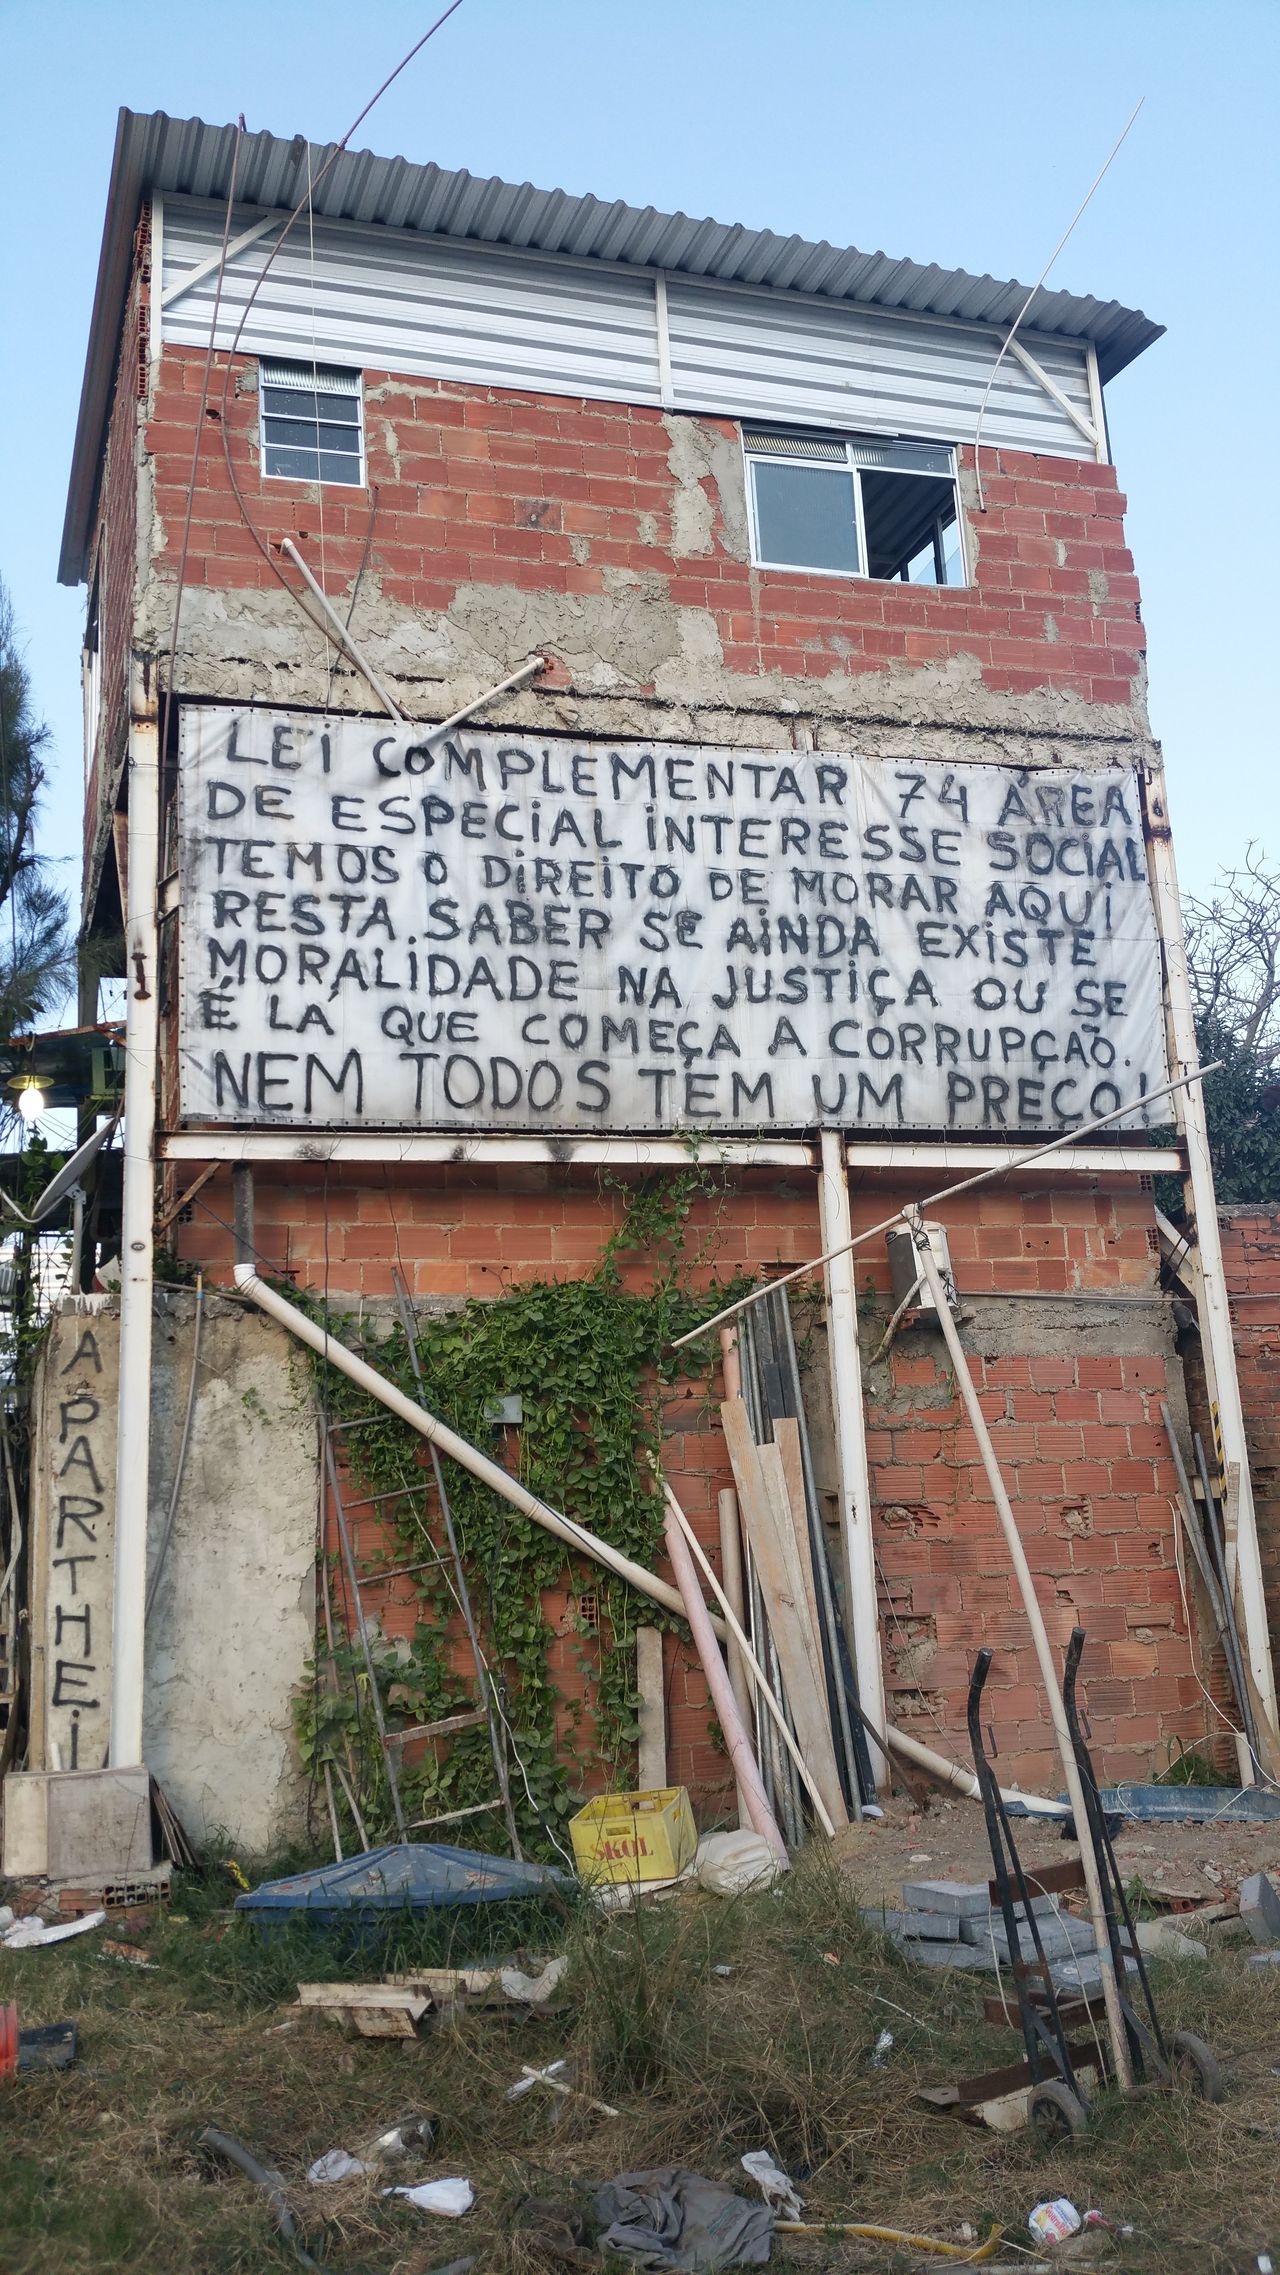 LEi COMPLEMENTAR 74 ÁREA
DE ESPECiAL iNTERESSE SOCiAL
TEMOS O DiREiTO DE MORAR AQUi
RESTA SABER SE AiNDA EXiSTE
MORALiDADE NA JUSTiÇA OU SE
É LÁ QUE COMEÇA A CORRUPÇÃO.
NEM TODOS TEM UM PREÇO!
APARTHEi
SKOL